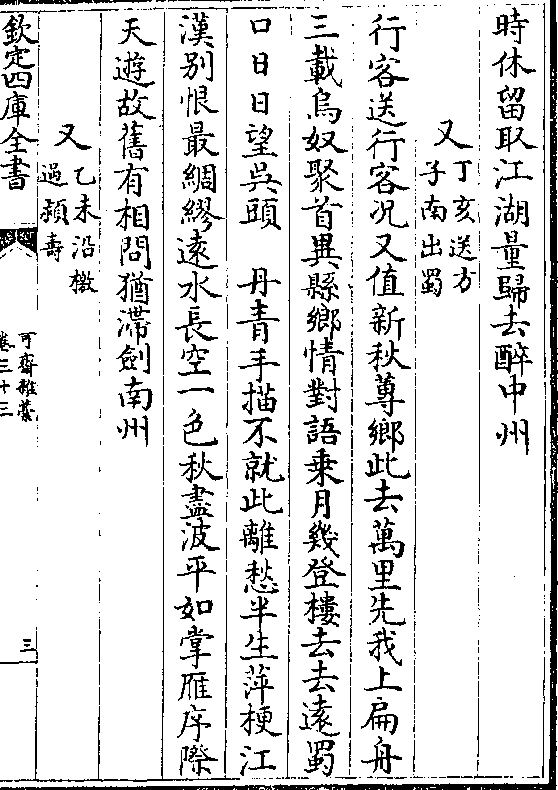 時休留取江湖量歸去醉中州
又丁亥送方
子南出蜀
行客送行客況又值新秋蓴鄉此去萬里先我上扁舟
三載烏奴聚首異縣鄉情對語乗月幾登樓去去遠蜀
口日日望吳頭　丹青手描不就此離愁半生萍梗江
漢别恨最綢繆遠水長空一色秋盡波平如掌雁序際
天遊故舊有相問猶滯劍南州
又乙未沿檄
過潁壽
欽定四庫全書
可齋雜藁
卷三十三
三